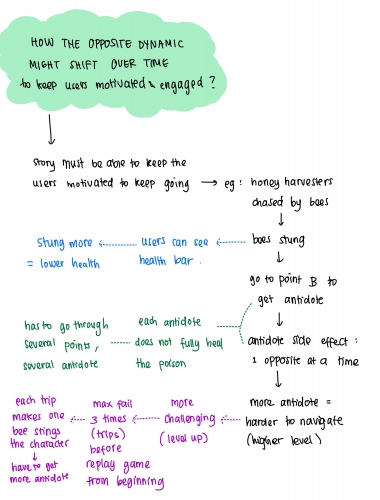 HOW THE OPPOSITE DYNAMIC
MIGHT SHIFT OVER TIME
to keep users motivated & engaged ?
story must be able to keep the
users motivated to keep going → eg : honey harvesters
chased by bees
↓
bees stung
users can see
health bar .
stung more
= lower health
↓
go to point B to
get antidote
↓
antidote side effect :
1 opposite at a time
each antidote
does not fully heal
the poison
has to go through
several points,
several antidote
↓
more antidote =
harder to navigate
(higher level)
more
challenging
(level up)
max fail
3 times
(trips)
before
replay game
from beginning
each trip
makes one
bee stings
the character
↓
have to get
more antidote